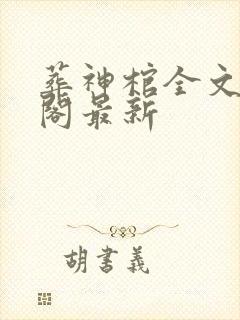 葬神棺全文
閣最新
胡書義